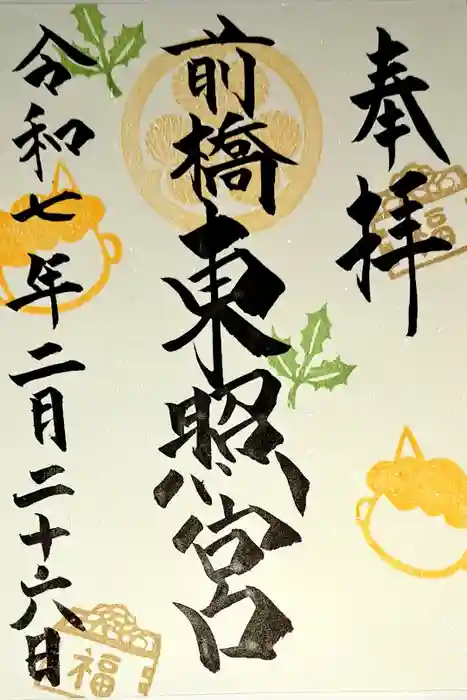 奉拝
前橋東照宮
令和七年二月二十六日
福
福